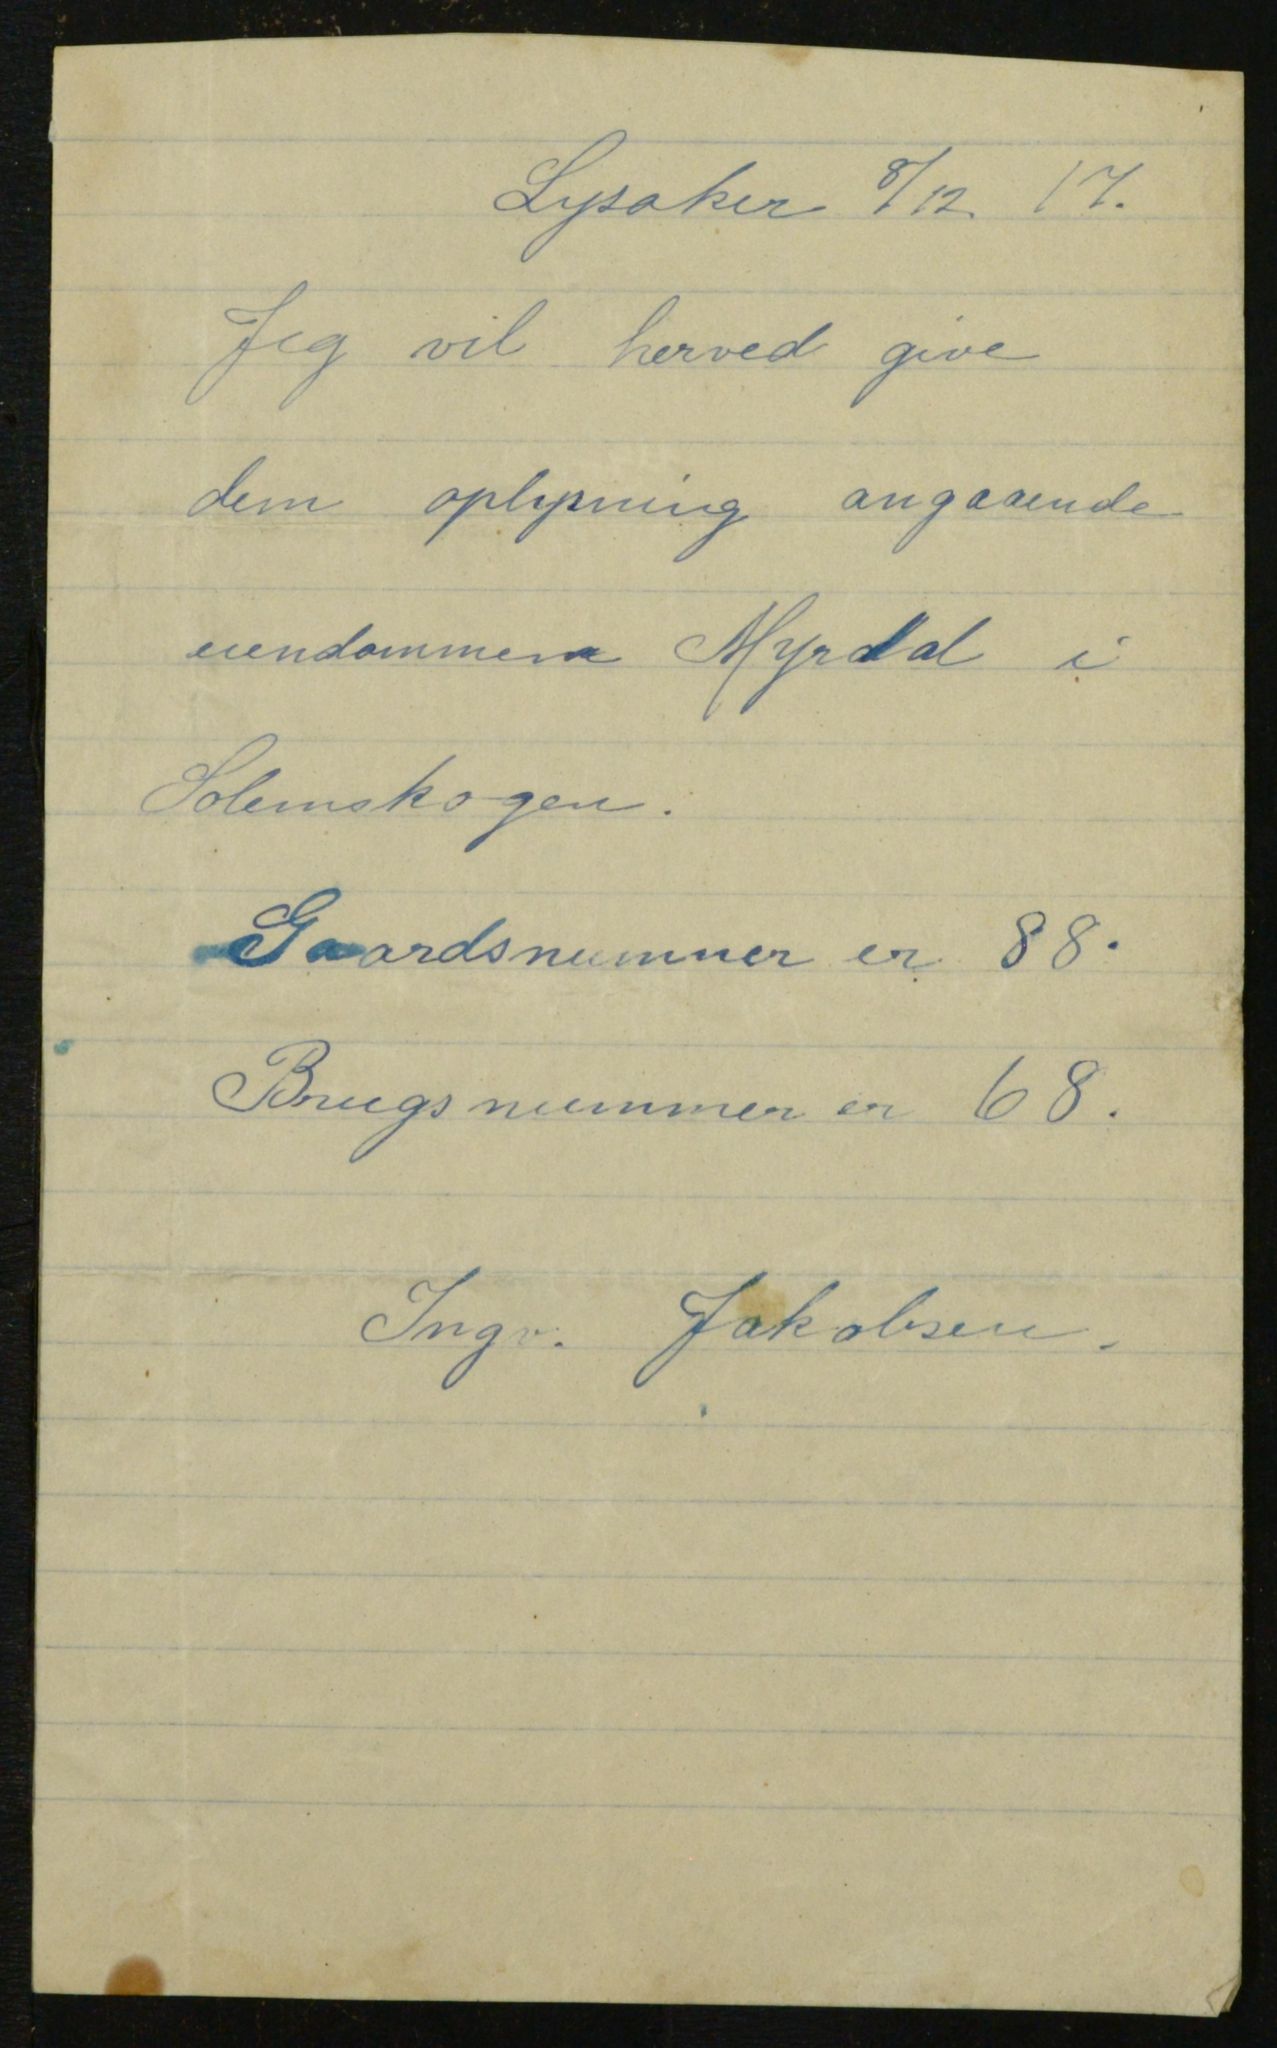 Lysaker 8/12 17.
Jeg vil herved give
dem oplysning angaaende
eiendommen Myrdal i
Solemskogen.
Gaardsnummer er 88.
Brugsnummer er 68.
Ingv. Jakobsen.